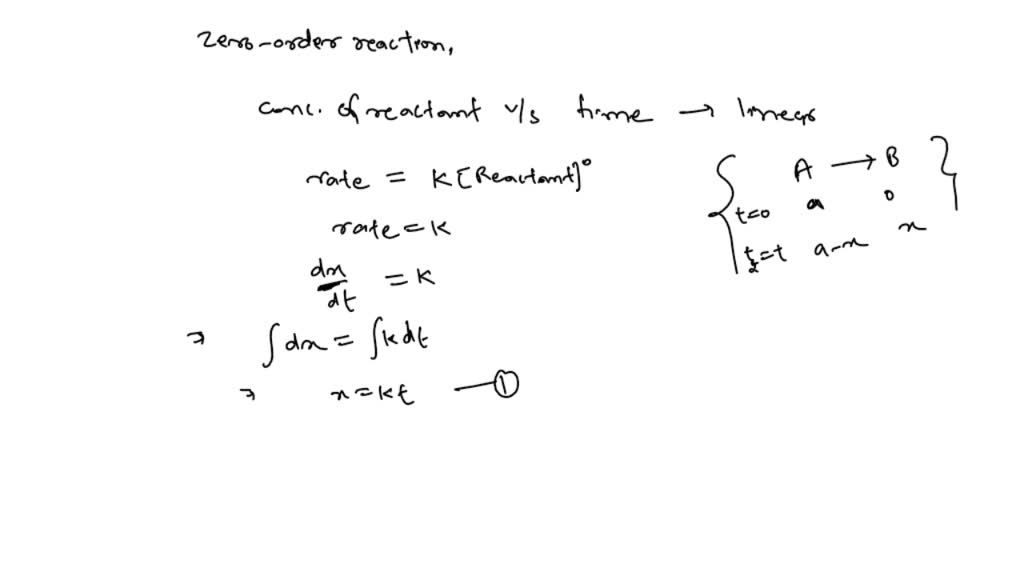 Zero-order reaction,
conc. of reactant v/s time → linear
rate = K[Reactant]°
rate = K
dx/dt = K
⇒ ∫dx = ∫kdt
⇒ x = kt —①
A → B
t=0 a 0
t=t a-x x